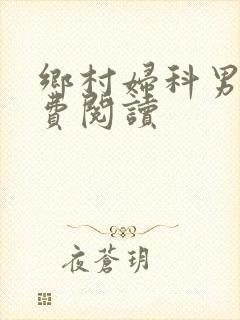 鄉村婦科男
費閱讀
夜蒼玥